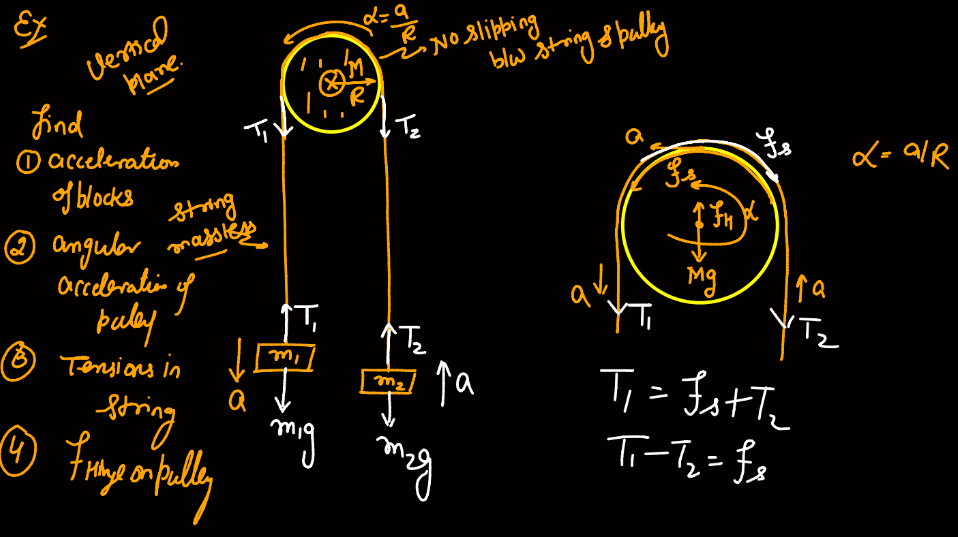 Ex
Vertical
plane.
find
① acceleration
of blocks
② angular
acceleration of
pulley
③ Tensions in
string
④ fHinge on pulley
α = a/R
No slipping
b/w string & pulley
M
R
T₁
T₂
string
massless
T₁
T₂
m₁
m₂
a
a
m₁g
m₂g
a
fs
fs
fH
α
Mg
a
a
T₁
T₂
α = a/R
T₁ = fs + T₂
T₁ - T₂ = fs